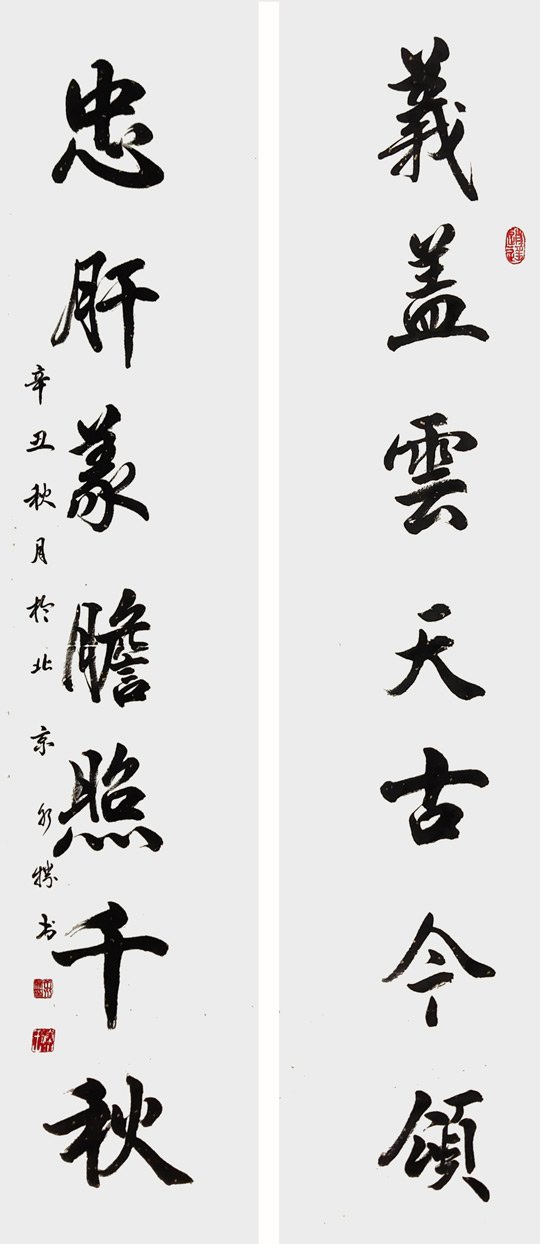 義盖雲天古今頌
忠肝義膽照千秋
辛丑秋月於北京书